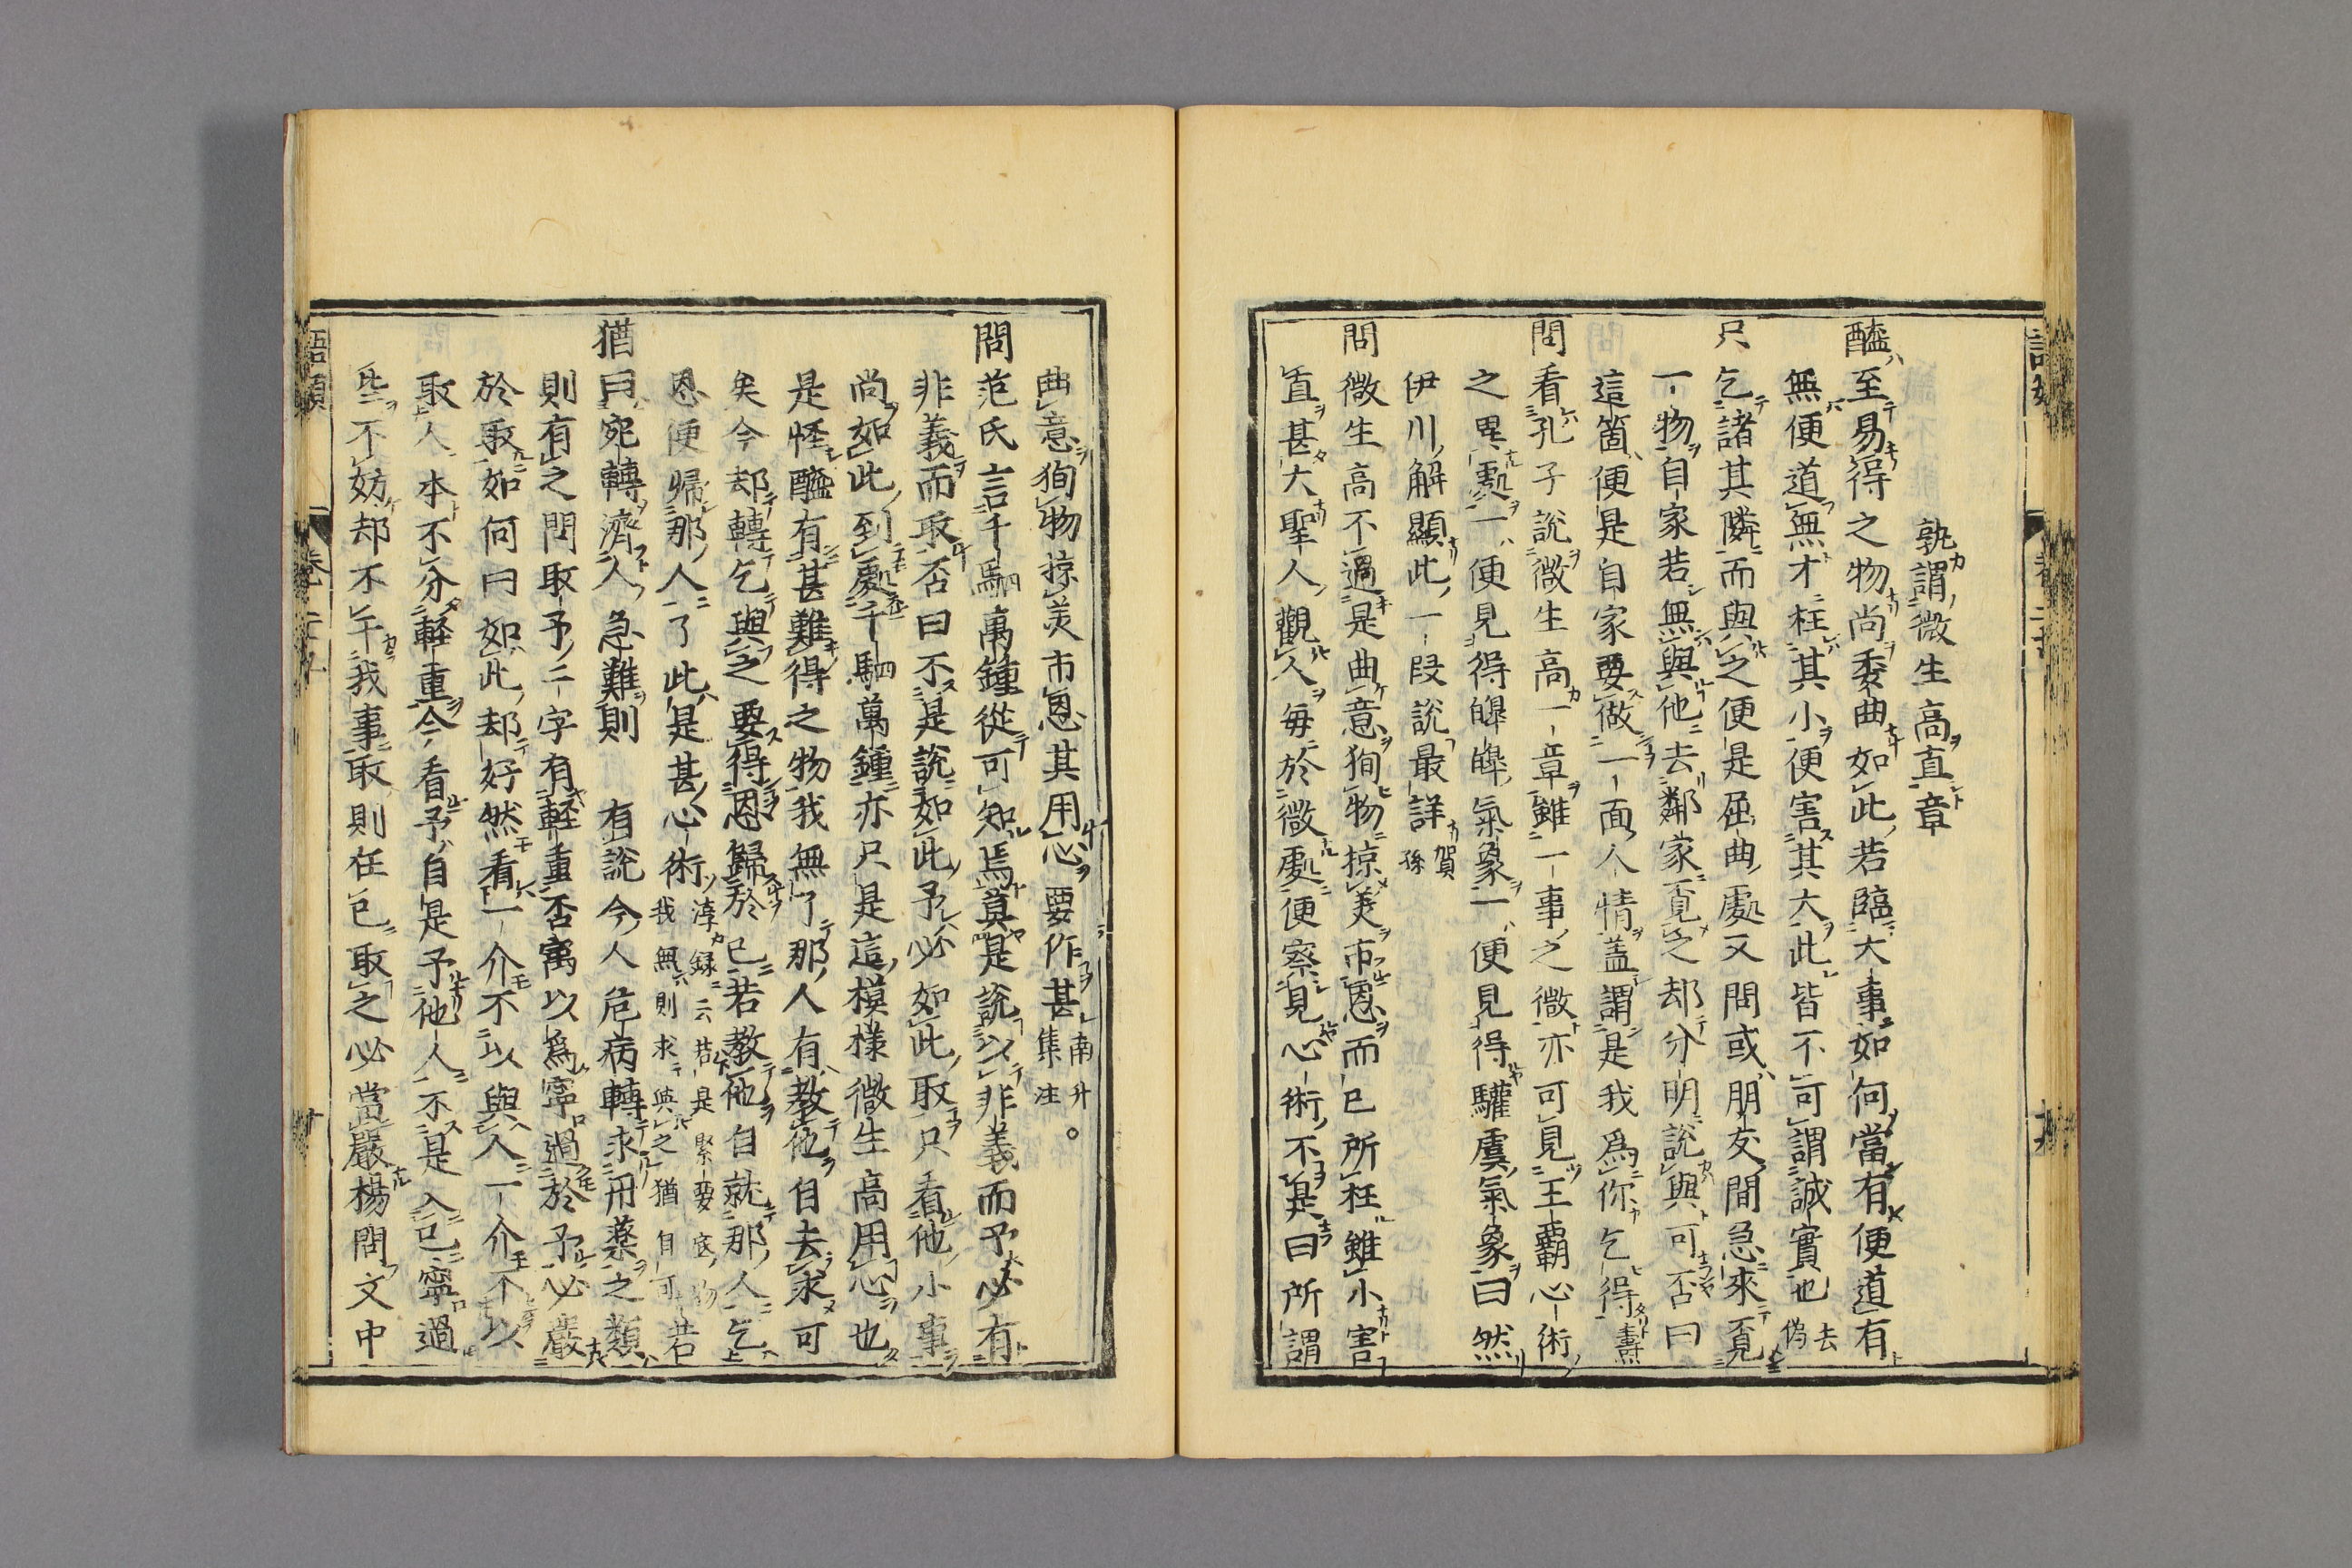 孰謂微生高直章
醯至易得之物尚委曲如此若臨大事如何當有便道有
無便道無才枉其小便害其大此皆不可謂誠實也去偽
只乞諸其隣而與之便是屈曲處又問或朋友間急來覔
一物自家若無與他去鄰家覔之却分明說與可否曰
這箇便是自家要做一面人情蓋謂是我爲你乞得燾
問看孔子說微生高一章雖一事之微亦可見王霸心術
之異處一便見得皥皥氣象一便見得驩虞氣象曰然
伊川解顯比一段說最詳賀孫
問微生高不過是曲意狥物掠美市恩而已所枉雖小害
直甚大聖人觀人每於微處便察見心術不是曰所謂
曲意狥物掠美市恩其用心要作甚南升集注〇
問范氏言千駟萬鍾從可知焉莫是說以非義而予必有
非義而取否曰不是說如此予必如此取只看他小事
尚如此到處千駟萬鍾亦只是這模樣微生高用心也
是怪醯有甚難得之物我無了那人有教他自去求可
矣今却轉乞與之要得恩歸於己若教他自就那人乞
恩便歸那人了此是甚心術淳録云若是緊要底物我無則求與之猶自可若
猶曰宛轉濟人急難則 有說今人危病轉求丹藥之類
則有之問取予二字有輕重否寓以爲寧過於予必嚴
於取如何曰如此却好然看一介不以與人一介不以
取人本不分輕重今看予自是予他人不是入己寧過
些不妨却不干我事取則在己取之必當嚴楊問文中
語類
卷二十